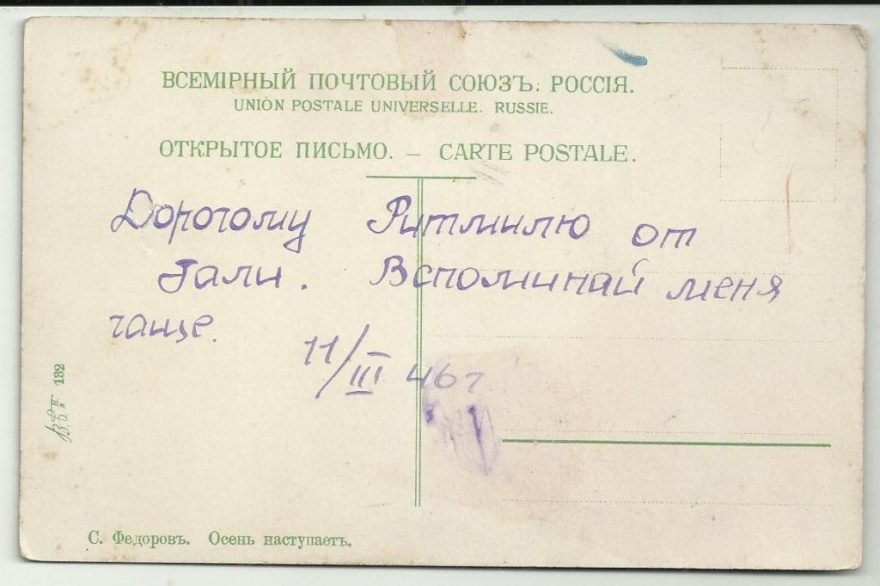 ВСЕМІРНЫЙ ПОЧТОВЫЙ СОЮЗЪ. РОССІЯ.
UNION POSTALE UNIVERSELLE. RUSSIE.
ОТКРЫТОЕ ПИСЬМО. – CARTE POSTALE.
Дорогому Ритмилю от
Гали. Вспоминай меня
чаще.
11/III 46г
132
С. Федоровъ. Осень наступаетъ.